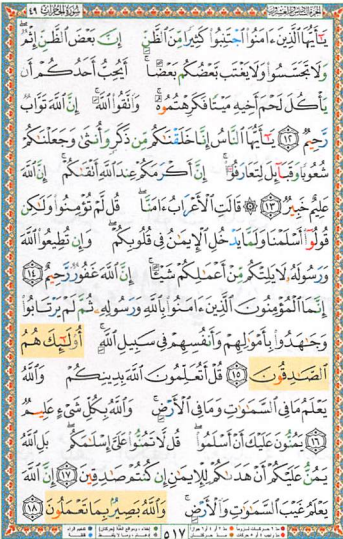 الجزء السادس والعشرون ٤٩ سورة الحجرات
يَٰٓأَيُّهَا ٱلَّذِينَ ءَامَنُوا۟ ٱجْتَنِبُوا۟ كَثِيرًا مِّنَ ٱلظَّنِّ إِنَّ بَعْضَ ٱلظَّنِّ إِثْمٌ ۖ
وَلَا تَجَسَّسُوا۟ وَلَا يَغْتَب بَّعْضُكُم بَعْضًا ۚ أَيُحِبُّ أَحَدُكُمْ أَن
يَأْكُلَ لَحْمَ أَخِيهِ مَيْتًا فَكَرِهْتُمُوهُ ۚ وَٱتَّقُوا۟ ٱللَّهَ ۚ إِنَّ ٱللَّهَ تَوَّابٌ
رَّحِيمٌ ١٢ يَٰٓأَيُّهَا ٱلنَّاسُ إِنَّا خَلَقْنَٰكُم مِّن ذَكَرٍ وَأُنثَىٰ وَجَعَلْنَٰكُمْ
شُعُوبًا وَقَبَآئِلَ لِتَعَارَفُوٓا۟ ۚ إِنَّ أَكْرَمَكُمْ عِندَ ٱللَّهِ أَتْقَىٰكُمْ ۚ إِنَّ ٱللَّهَ
عَلِيمٌ خَبِيرٌ ١٣ ۞ قَالَتِ ٱلْأَعْرَابُ ءَامَنَّا ۖ قُل لَّمْ تُؤْمِنُوا۟ وَلَٰكِن
قُولُوٓا۟ أَسْلَمْنَا وَلَمَّا يَدْخُلِ ٱلْإِيمَٰنُ فِى قُلُوبِكُمْ ۖ وَإِن تُطِيعُوا۟ ٱللَّهَ
وَرَسُولَهُۥ لَا يَلِتْكُم مِّنْ أَعْمَٰلِكُمْ شَيْـًٔا ۚ إِنَّ ٱللَّهَ غَفُورٌ رَّحِيمٌ ١٤
إِنَّمَا ٱلْمُؤْمِنُونَ ٱلَّذِينَ ءَامَنُوا۟ بِٱللَّهِ وَرَسُولِهِۦ ثُمَّ لَمْ يَرْتَابُوا۟
وَجَٰهَدُوا۟ بِأَمْوَٰلِهِمْ وَأَنفُسِهِمْ فِى سَبِيلِ ٱللَّهِ ۚ أُو۟لَٰٓئِكَ هُمُ
ٱلصَّٰدِقُونَ ١٥ قُلْ أَتُعَلِّمُونَ ٱللَّهَ بِدِينِكُمْ وَٱللَّهُ
يَعْلَمُ مَا فِى ٱلسَّمَٰوَٰتِ وَمَا فِى ٱلْأَرْضِ ۚ وَٱللَّهُ بِكُلِّ شَىْءٍ عَلِيمٌ
١٦ يَمُنُّونَ عَلَيْكَ أَنْ أَسْلَمُوا۟ ۖ قُل لَّا تَمُنُّوا۟ عَلَىَّ إِسْلَٰمَكُم ۖ بَلِ ٱللَّهُ
يَمُنُّ عَلَيْكُمْ أَنْ هَدَىٰكُمْ لِلْإِيمَٰنِ إِن كُنتُمْ صَٰدِقِينَ ١٧ إِنَّ ٱللَّهَ
يَعْلَمُ غَيْبَ ٱلسَّمَٰوَٰتِ وَٱلْأَرْضِ ۚ وَٱللَّهُ بَصِيرٌۢ بِمَا تَعْمَلُونَ ١٨
٥١٧